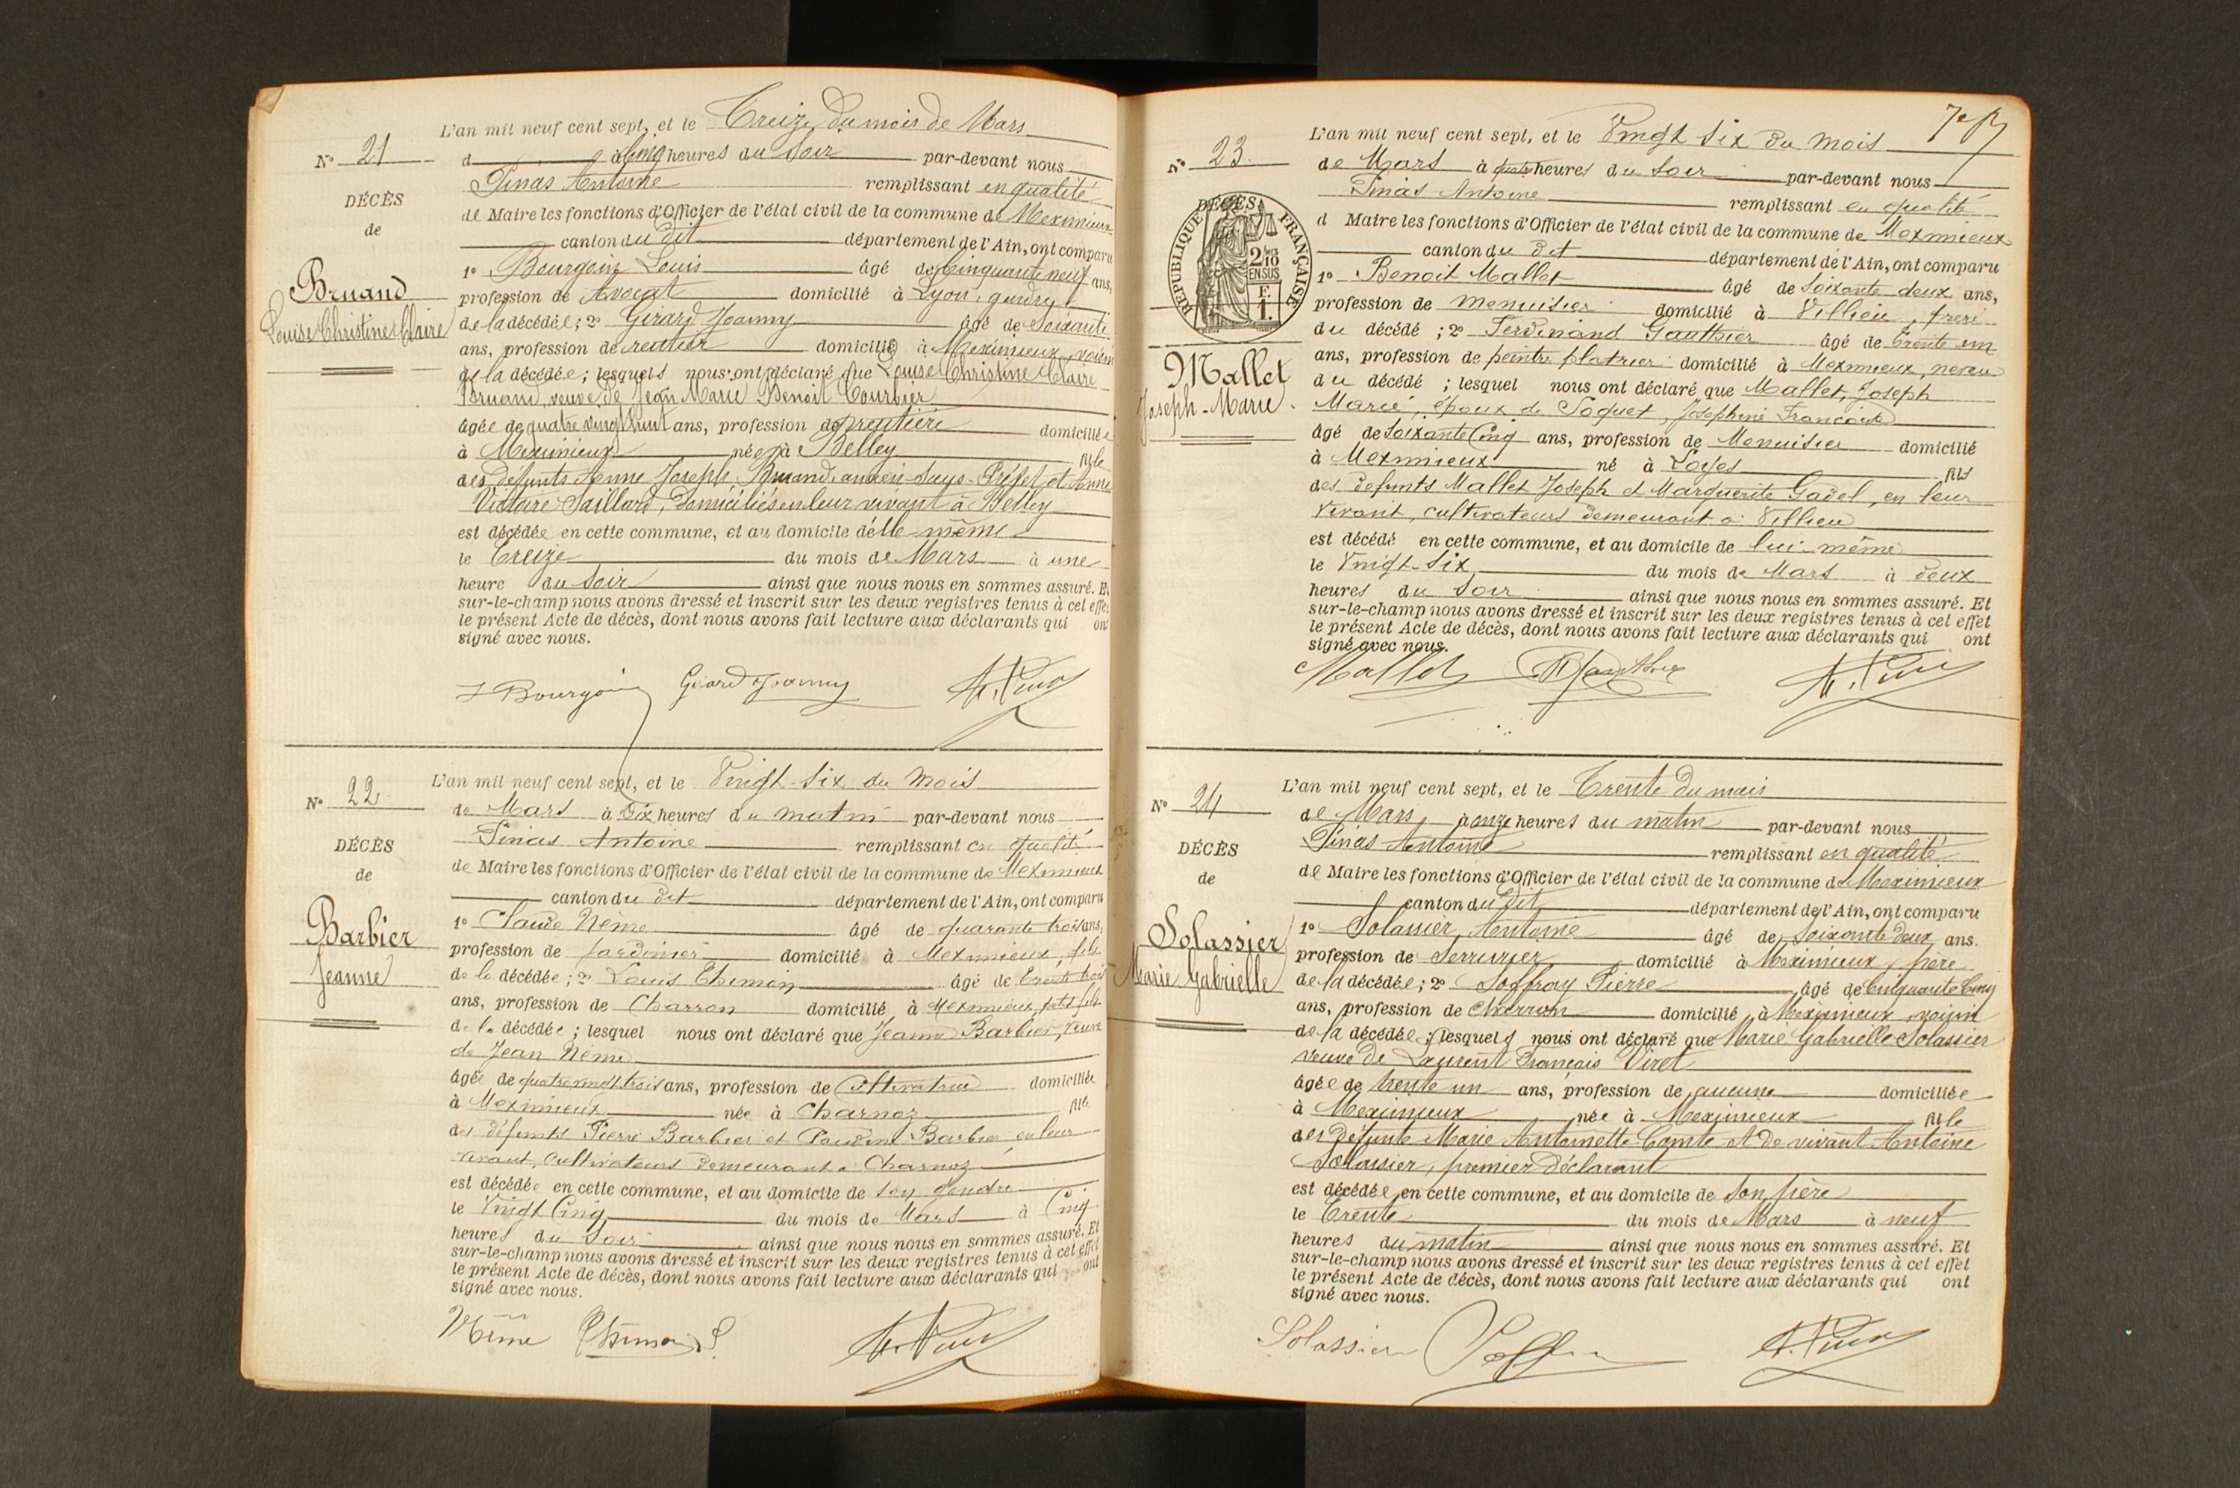 L'an mil neuf cent sept, et le Treize du mois de Mars
N° 21
d à Cinq heures du soir par-devant nous
Pinas Antoine remplissant en qualité
DÉCÈS
de Maire les fonctions d'Officier de l'état civil de la commune de Meximieux
de
canton du dit département de l'Ain, ont comparu
1° Bourgoin Louis âgé de Cinquante neuf ans,
Bruand
profession de Avocat domicilié à Lyon, gendre
Louise Christine Claire
de la décédée; 2° Girard Joanny âgé de soixante
ans, profession de rentier domicilié à Meximieux, voisin
de la décédée; lesquels nous ont déclaré que Louise Christine Claire
Bruand, veuve de Jean Marie Benoit Courbier
âgée de quatre vingt huit ans, profession de rentière domiciliée
à Meximieux née à Belley fille
des défunts Anne Joseph Bruand, ancien Sous-Préfet et Anne
Victoire Saillard, domiciliés en leur vivant à Belley
est décédée en cette commune, et au domicile d'elle même
le treize du mois de Mars à une
heure du soir ainsi que nous nous en sommes assuré. Et
sur-le-champ nous avons dressé et inscrit sur les deux registres tenus à cet effet
le présent Acte de décès, dont nous avons fait lecture aux déclarants qui ont
signé avec nous.
L Bourgoin Girard Joanny A. Pinas
L'an mil neuf cent sept, et le Vingt-six du mois
N° 22
de Mars à Dix heures du matin par-devant nous
Pinas Antoine remplissant en qualité
DÉCÈS
de Maire les fonctions d'Officier de l'état civil de la commune de Meximieux
de
canton du dit département de l'Ain, ont comparu
Barbier
1° Claude Nême âgé de quarante trois ans,
profession de jardinier domicilié à Meximieux, fils
Jeanne
de la décédée; 2° Louis Thimon âgé de trente trois
ans, profession de Charron domicilié à Meximieux, petit fils
de la décédée; lesquel nous ont déclaré que Jeanne Barbier, veuve
de Jean Nême
âgée de quatre vingt trois ans, profession de Cultivatrice domiciliée
à Meximieux née à Charnoz fille
des défunts Pierre Barbier et Barbier en leur
vivant, cultivateurs demeurant à Charnoz
est décédée en cette commune, et au domicile de son gendre
le Vingt Cinq du mois de Mars à Cinq
heures du soir ainsi que nous nous en sommes assuré. Et
sur-le-champ nous avons dressé et inscrit sur les deux registres tenus à cet effet
le présent Acte de décès, dont nous avons fait lecture aux déclarants qui ont
signé avec nous.
Nême Thimon L A. Pinas
7e
L'an mil neuf cent sept, et le Vingt six du mois
N° 23
de Mars à quatre heures du soir par-devant nous
Pinas Antoine remplissant en qualité
DÉCÈS
RÉPUBLIQUE FRANÇAISE
2/10
EN SUS
F.
1.
d Maire les fonctions d'Officier de l'état civil de la commune de Meximieux
canton du dit département de l'Ain, ont comparu
1° Benoit Mallet âgé de soixante deux ans,
profession de menuisier domicilié à Villieu, frère
du décédé; 2° Ferdinand Gauthier âgé de trente un
Mallet
Joseph-Marie
ans, profession de peintre platrier domicilié à Meximieux, neveu
du décédé; lesquel nous ont déclaré que Mallet, Joseph
Marie, époux de Soquet, Joséphine Françoise
âgé de soixante Cinq ans, profession de Menuisier domicilié
à Meximieux né à Loyes fils
des défunts Mallet Joseph et Marguerite Gadel, en leur
vivant, cultivateurs demeurant à Villieu
est décédé en cette commune, et au domicile de lui-même
le Vingt-Six du mois de Mars à deux
heures du soir ainsi que nous nous en sommes assuré. Et
sur-le-champ nous avons dressé et inscrit sur les deux registres tenus à cet effet
le présent Acte de décès, dont nous avons fait lecture aux déclarants qui ont
signé avec nous.
Mallet Gauthier A. Pinas
L'an mil neuf cent sept, et le Trente du mois
N° 24
de Mars à onze heures du matin par-devant nous
Pinas Antoine remplissant en qualité
DÉCÈS
de Maire les fonctions d'Officier de l'état civil de la commune de Meximieux
de
canton du dit département de l'Ain, ont comparu
Solassier
1° Solassier Antoine âgé de soixante deux ans.
profession de Serrurier domicilié à Meximieux, père
Marie Gabrielle
de la décédée; 2° Joffray Pierre âgé de Cinquante Cinq
ans, profession de charron domicilié à Meximieux, voisin
de la décédée; lesquels nous ont déclaré que Marie Gabrielle Solassier
veuve de Laurent François Viret
âgée de trente un ans, profession de aucune domiciliée
à Meximieux née à Meximieux fille
des défunte Marie Antoinette Comte et de vivant Antoine
Solassier, premier déclarant
est décédée en cette commune, et au domicile de son père
le Trente du mois de Mars à neuf
heures du matin ainsi que nous nous en sommes assuré. Et
sur-le-champ nous avons dressé et inscrit sur les deux registres tenus à cet effet
le présent Acte de décès, dont nous avons fait lecture aux déclarants qui ont
signé avec nous.
Solassier Joffray A. Pinas